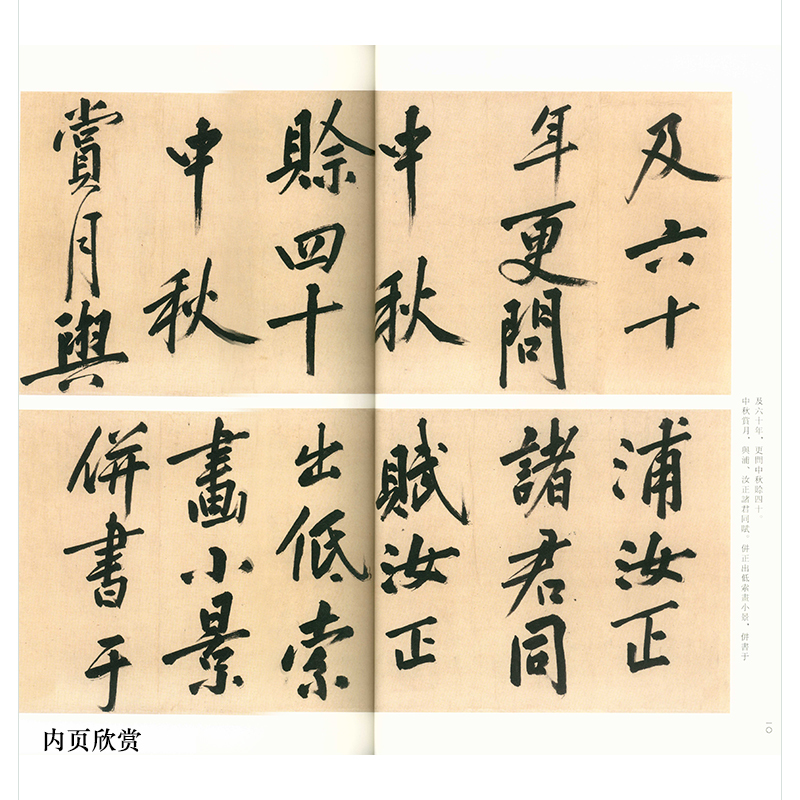 及六十
年更問
中秋
賒四十
中秋
賞月與
浦汝正
諸君同
賦汝正
出低索
畫小景
併書于
及六十年，更問中秋賒四十。
中秋賞月，與浦、汝正諸君同賦。併正出低索畫小景，併書于
一〇
内页欣赏